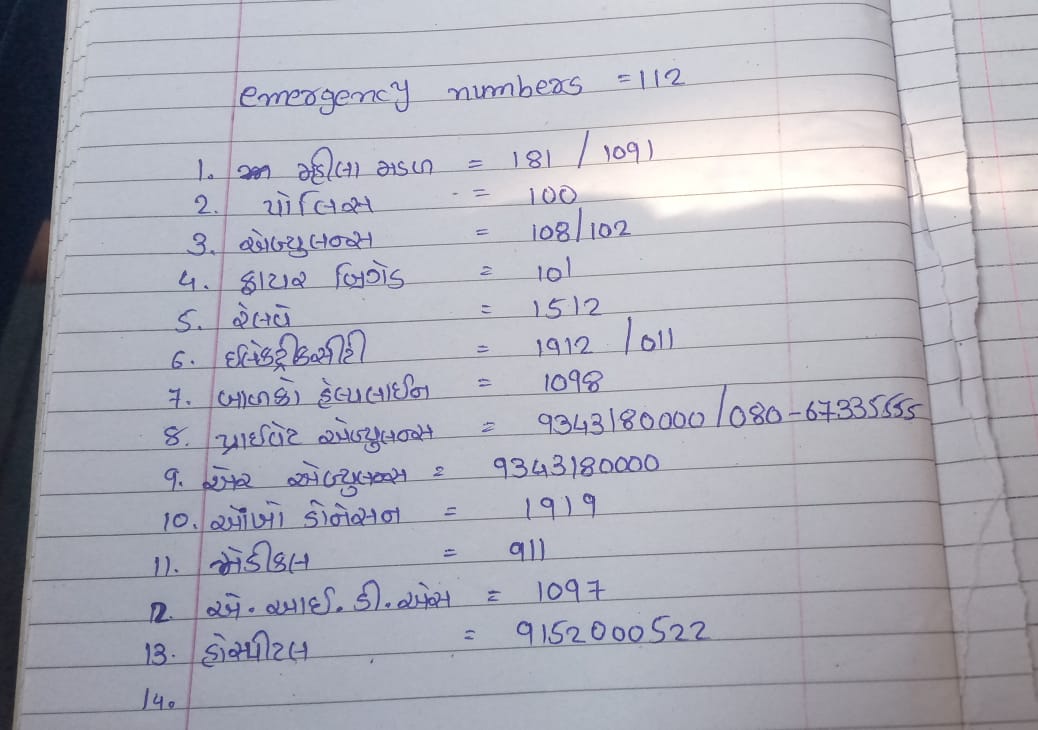 emergency numbers = 112
1. મહીલા મડળ = 181 / 1091
2. પોલિસ = 100
3. એબ્યુલન્સ = 108/102
4. ફાયર બ્રિગેડ = 101
5. રેલવે = 1512
6. ઈલેકટ્રીકસીટી = 1912 / 011
7. બાળકો હેલ્પલાઈન = 1098
8. પ્રાઈવેટ એબ્યુલન્સ = 9343180000 / 080-67335555
9. એર એબ્યુલન્સ = 9343180000
10. આંખો ડોનેસન = 1919
11. મેડીકલ = 911
12. એ. આઈ. ડી. એસ = 1097
13. હોસ્પીટલ = 9152000522
14.